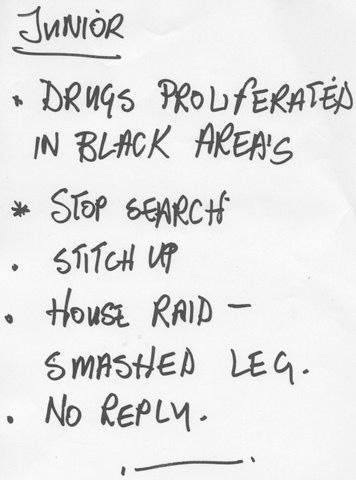 JUNIOR
• DRUGS PROLIFERATED
IN BLACK AREA'S
* STOP SEARCH
• STITCH UP
• HOUSE RAID —
SMASHED LEG.
• NO REPLY.